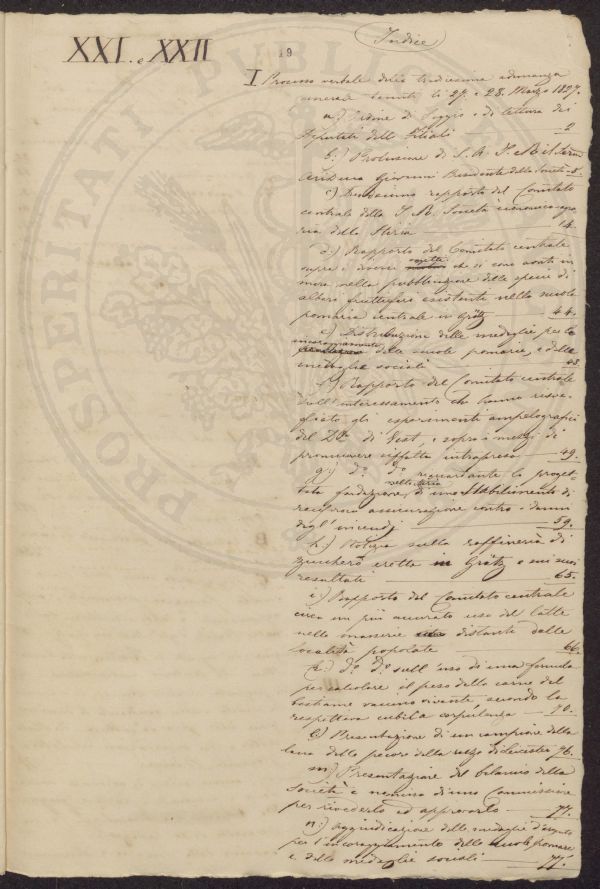 XXI. e XXII
19
Indice
I Processo verbale della tredicesima adunanza
generale tenuta li 27. e 28. Marzo 1827.
a.) Ordine di Seggio e di lettura dei
Deputati delle Filiali 2
b.) Prolusione di S. A. I. il Ser.mo
Arciduca Giovanni Presidente della Società 8.
c.) rapporto del Comitato
centrale della I. R. Società economico-agra
ria della Stiria 14.
d.) Rapporto del Comitato centrale
sopra i diversi oggetti che si sono avuti in
mira nella pubblicazione delle specie di
alberi fruttiferi esistenti nella scuola
pomaria centrale in Grätz 44.
e.) Distribuzione delle medaglie per lo
incoraggiamento delle scuole pomarie, e delle
medaglie sociali 48.
f.) Rapporto del Comitato centrale
sull'interessamento che hanno risve-
gliato gli esperimenti ampelografici
del D.r di Vest, e sopra i mezzi di
promuovere siffatta intrapresa 49.
g.) d.o d.o riguardante la proget-
tata fondazione nella Stiria di uno Stabilimento di
reciproca assicurazione contro i danni
degl'incendj 59.
h.) Notizia sulla raffineria di
zucchero eretta in Grätz e sui suoi
resultati 65.
i.) Rapporto del Comitato centrale
circa un più accurato uso del latte
nelle masserie distanti dalle
località popolate 66.
k.) d.o d.o sull'uso di una formula
per calcolare il peso della carne del
bestiame vaccino vivente secondo la
respettiva cubica corpulenza 70.
l.) Presentazione di un campione della
lana delle pecore della razza di Leicester 76.
m.) Presentazione del bilancio della
Società e nomina di una Commissione
per rivederlo ed approvarlo 77.
n.) Aggiudicazione delle medaglie d'argento
per l'incoraggiamento delle scuole pomarie
e delle medaglie sociali 77.